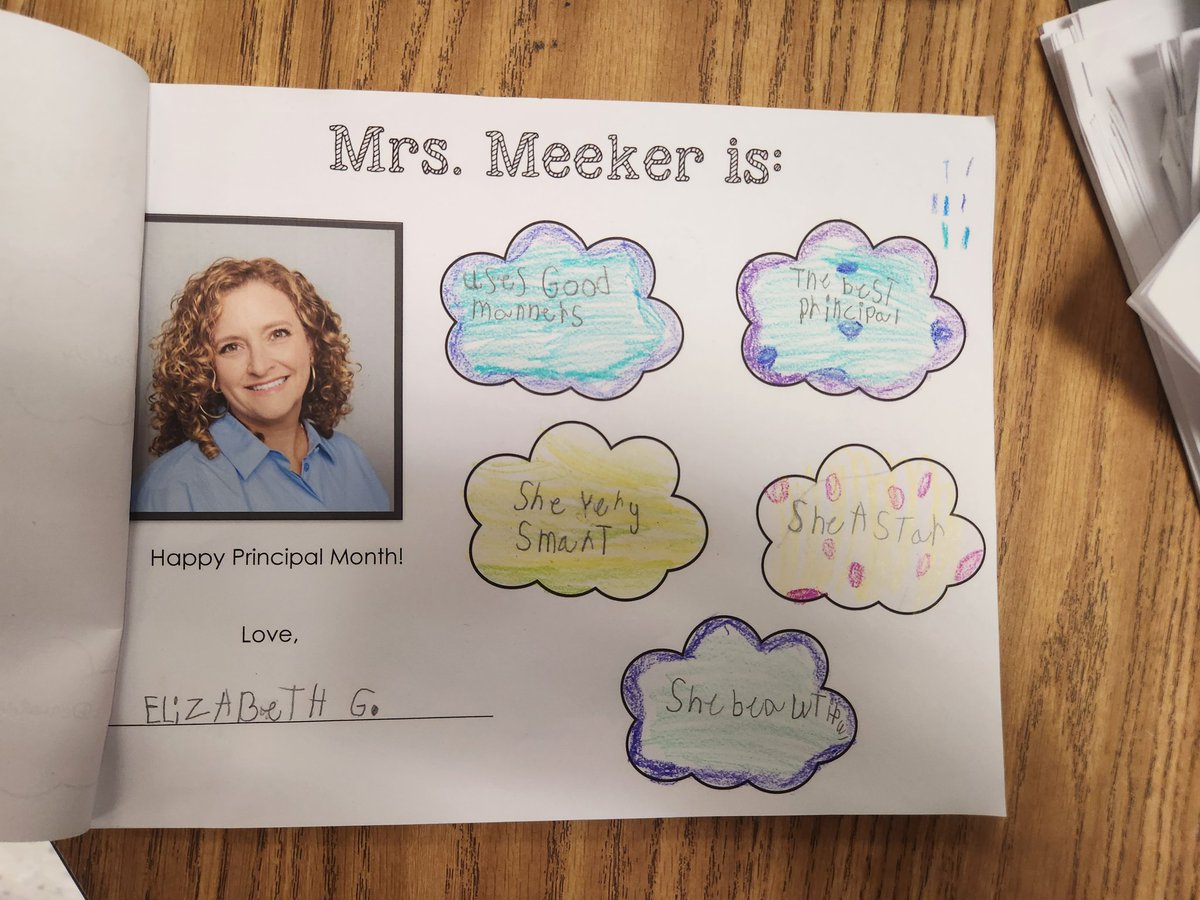 Mrs. Meeker is:
uses Good
manners
The best
principal
She very
Smart
She A STar
She beautiful
Happy Principal Month!
Love,
ELiZABeTH G.